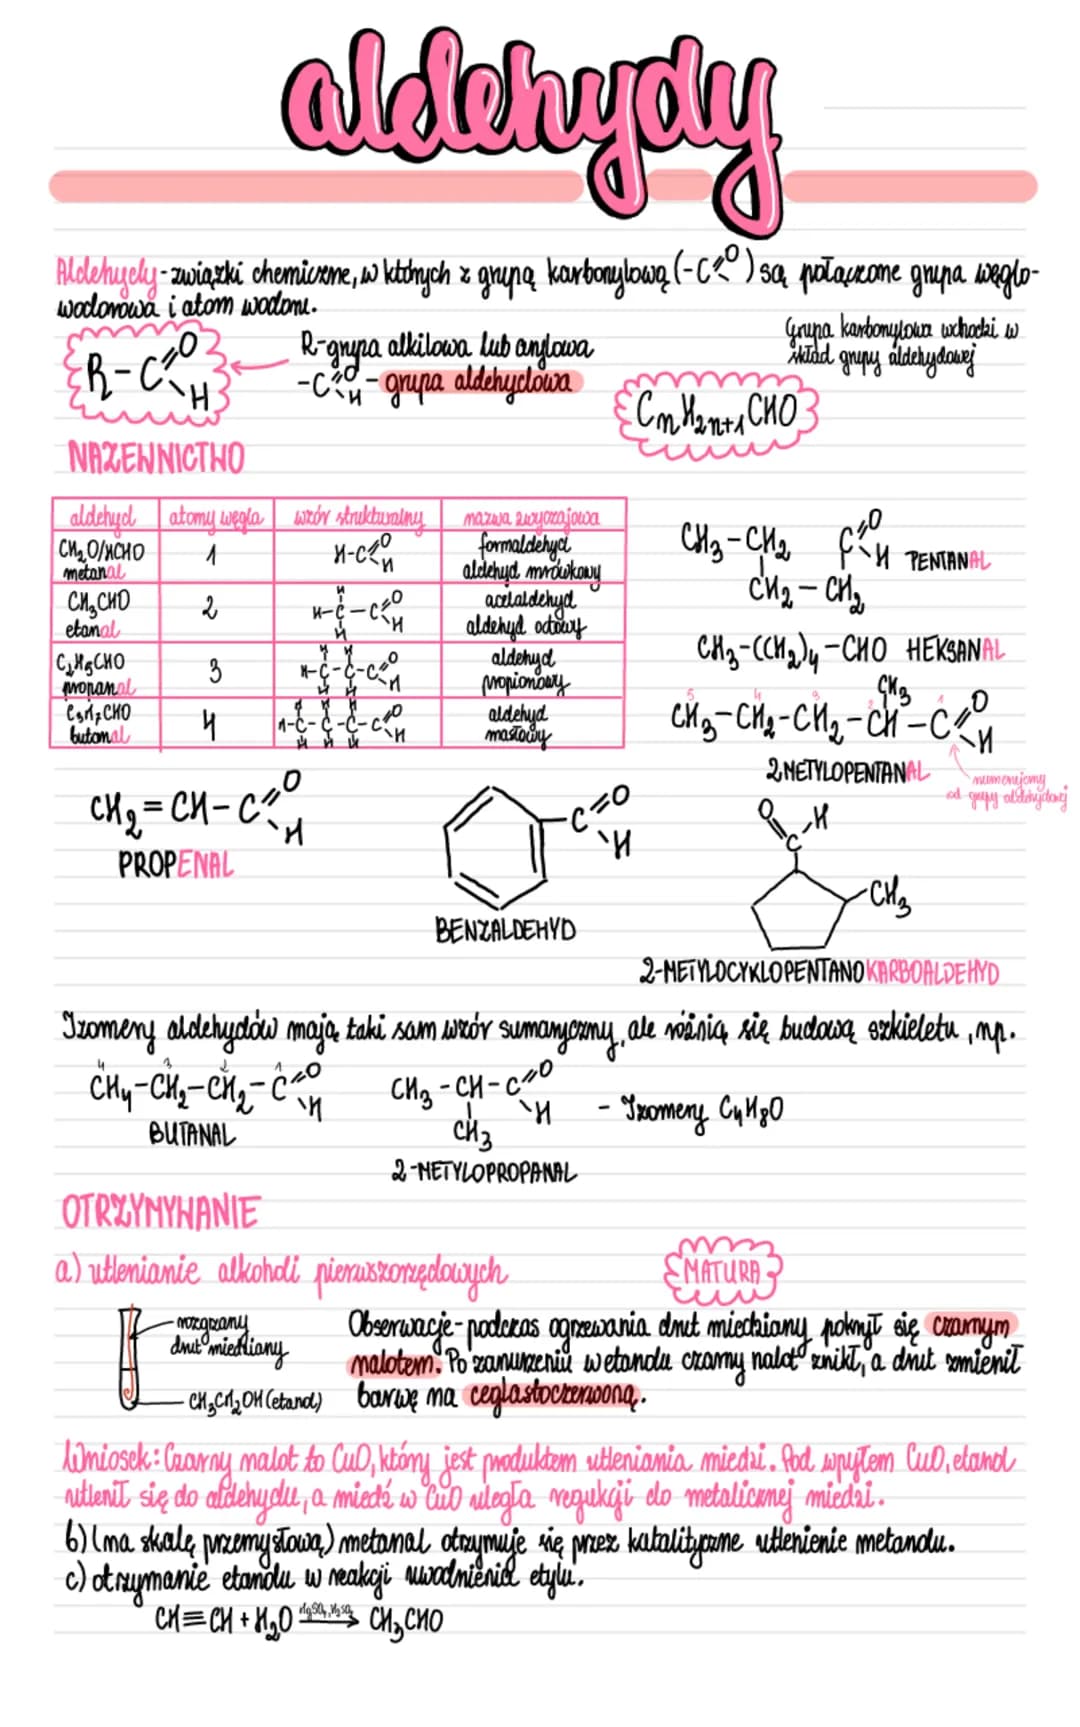 aldehydy
Aldehydy - związki chemiczne, w których z grupą karbonylową (-C=O) są połączone grupa węglo-
wodorowa i atom wodoru.
R-C=O
H
R-grupa alkilowa lub arylowa
-C=O
H - grupa aldehydowa
Grupa karbonylowa wchodzi w
skład grupy aldehydowej
CnH2n+1CHO
NAZEWNICTWO
aldehyd atomy węgla wzór strukturalny nazwa zwyczajowa
CH₂O/HCHO
metanal
1
H-C=O
H
formaldehyd
aldehyd mrówkowy
CH₃CHO
etanal
2
H
H-C-C=O
H H
acetaldehyd
aldehyd octowy
C₂H₅CHO
propanal
3
H H
H-C-C-C=O
H H H
aldehyd
propionowy
C₃H₇CHO
butanal
4
H H H
H-C-C-C-C=O
H H H H
aldehyd
masłowy
CH₃-CH₂ C=O
H PENTANAL
CH₂-CH₂
CH₃-(CH₂)₄-CHO HEKSANAL
CH₃
5 4 3 2 1
CH₃-CH₂-CH₂-CH-C=O
H
2METYLOPENTANAL
numerujemy
od grupy aldehydowej
CH₂=CH-C=O
H
PROPENAL
C=O
H
BENZALDEHYD
O H
C
CH₃
2-METYLOCYKLOPENTANOKARBOALDEHYD
Izomery aldehydów mają taki sam wzór sumaryczny, ale różnią się budową szkieletu, np.
4 3 2 1
CH₄-CH₂-CH₂-C=O
H
BUTANAL
CH₃-CH-C=O
H
CH₃
2-METYLOPROPANAL
- Izomery C₄H₈O
OTRZYMYWANIE
a) utlenianie alkoholi pierwszorzędowych
MATURA
rozgrzany
drut miedziany
CH₃CH₂OH (etanol)
Obserwacje - podczas ogrzewania drut miedziany pokrył się czarnym
nalotem. Po zanurzeniu w etanolu czarny nalot znikł, a drut zmienił
barwę na ceglastoczerwoną.
Wniosek: Czarny nalot to CuO, który jest produktem utleniania miedzi. Pod wpyłem CuO, etanol
utlenił się do aldehydu, a miedź w CuO uległa regukcji do metalicznej miedzi.
b) (na skalę przemysłową) metanal otrzymuje się przez katalityczne utlenienie metanolu.
c) otrzymanie etanolu w reakcji uwodnienia etylu.
CH≡CH + H₂O HgSO₄, H₂SO₄→ CH₃CHO